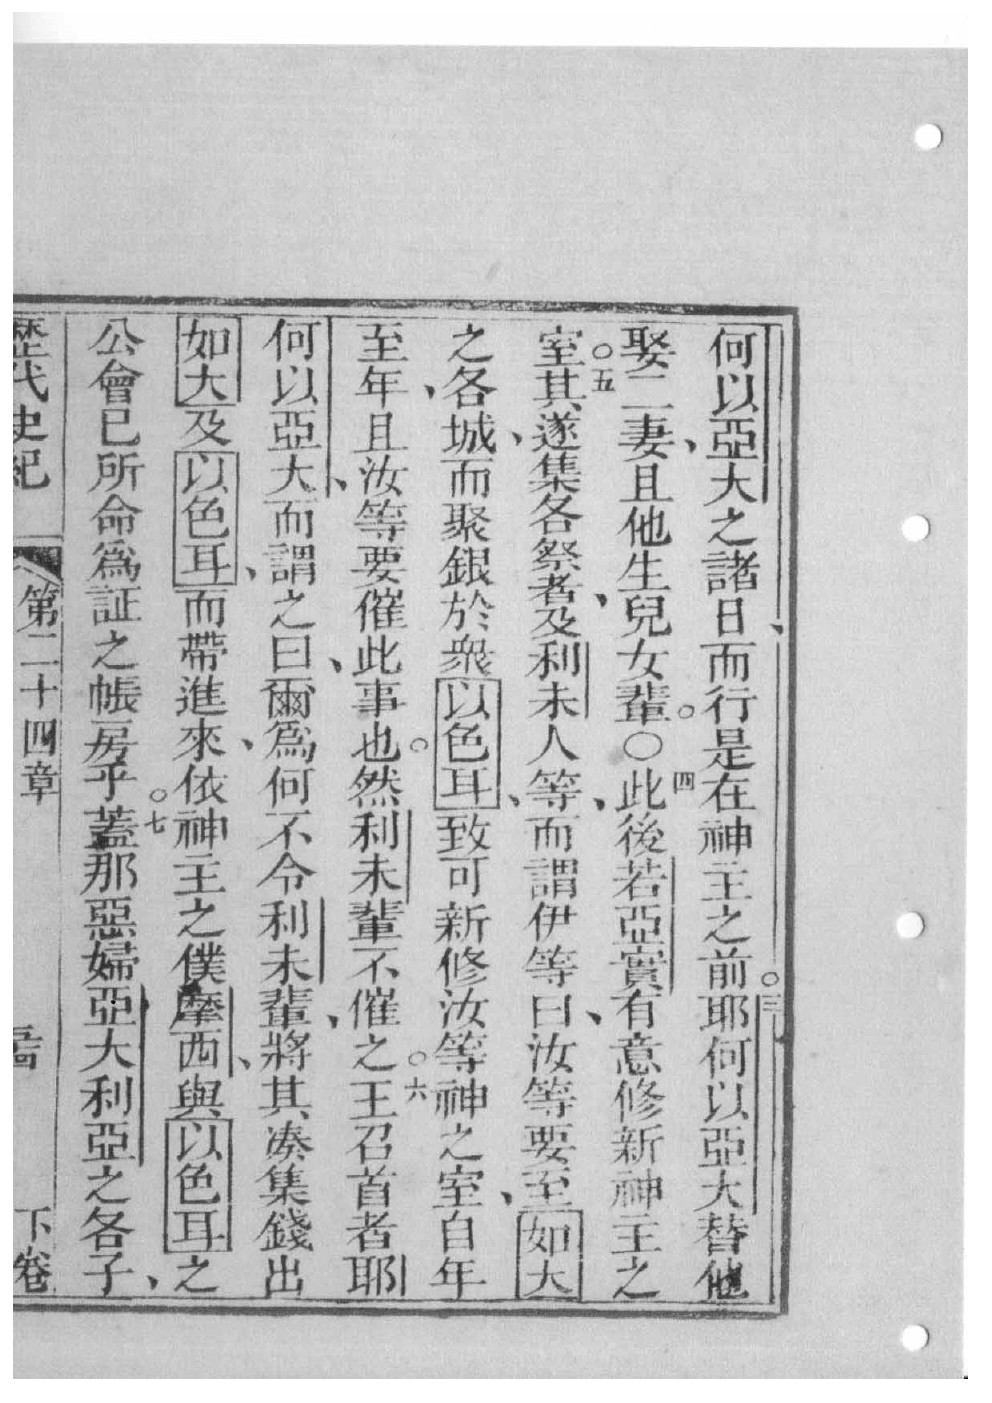 何以亞大之諸日、而行是在神主之前。三耶何以亞大替他
娶二妻、且他生兒女輩。〇四此後若亞實有意修新神主之
室。五其遂集各祭者、及利未人等、而謂伊等曰、汝等要至如大
之各城、而聚銀於衆以色耳、致可新修汝等神之室、自年
至年、且汝等要催此事也。然利未輩不催之。六王召首者耶
何以亞大、而謂之曰、爾爲何不令利未輩、將其湊集錢出
如大及以色耳、而帶進來、依神主之僕摩西、與以色耳之
公會已所命爲証之帳房乎。七蓋那惡婦亞大利亞之各子、
歷代史紀 第二十四章 下卷